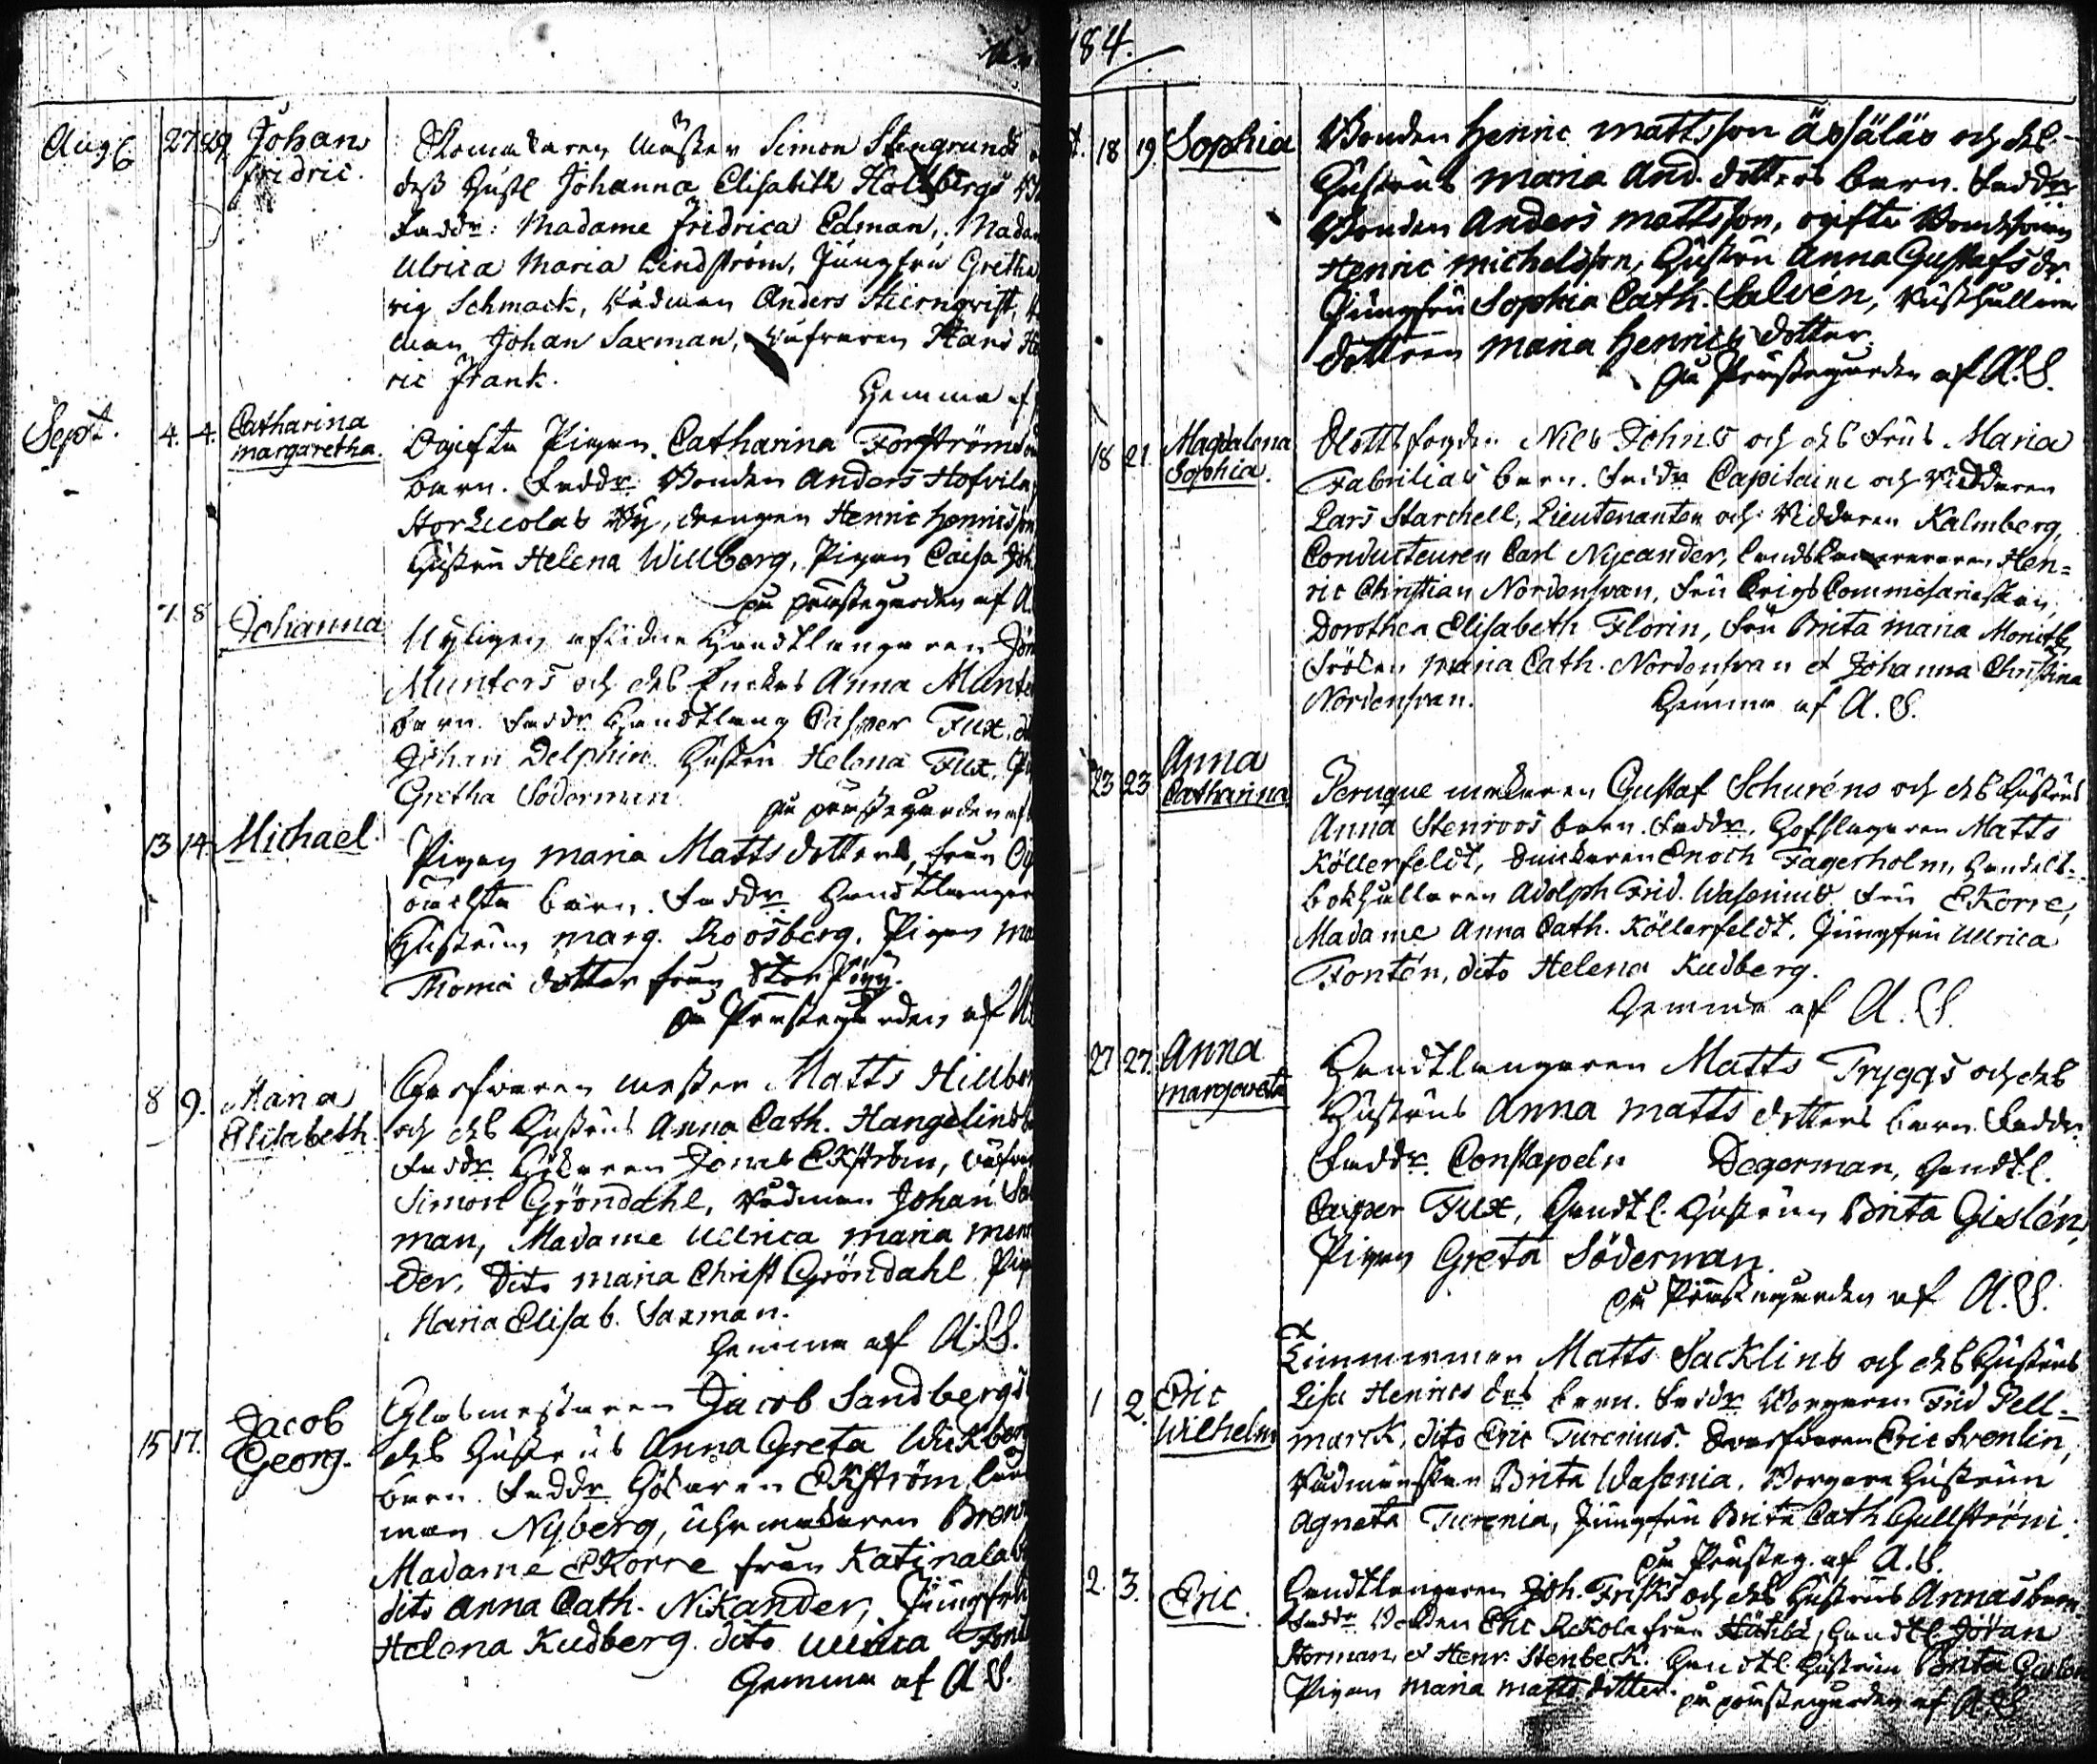 184.
Aug 27 29 Johan
Fridric.
Skomakaren Mäster Simon Stengrunds
dess Hust Johanna Elisabeth Hallbergs
Faddr: Madame Fridrica Edman, Madam
Ulrica Maria Lindström, Jungfru Gretha
Schmack, Rådman Anders Stiernqvist,
Johan Saxman, Hans
ric Frank.
Hemma af
Sept. 4. 4. Catharina
Margaretha.
Ogifta Pigan Catharina Forströms
barn. Faddr Bonden Anders
By, drengen Henric Henricsson
Hustru Helena Willberg, Pigan Caisa
på prästegården af A.
7. 8 Johanna
Nyligen aflidne Handtlangaren
Munters och des Enckas Anna Munters
barn. Faddr Handtlang Casper Fux,
Johan Delphin Hustru Helena Fux,
Gretha Söderman
på prästegården af
13 14. Michael.
Pigan Maria Matts dotters, från
oächta barn. Faddr Handtlanger
Hustrun Marg. Roosberg. Pigan
Thomæ dotter från
på Prästegården af
8 9. Maria
Elisabeth.
Garfvaren Mester Matts
och des Hustrus Anna Cath. Hangelins
Faddr Jonas Ekström,
Simon Gröndahl, Rådman Johan Sax
man, Madame Ullrica Maria
der, Dito Maria Christ Gröndahl, Pig
Maria Elisab. Saxman.
Hemma af A.S.
15 17. Jacob
Georg.
Glasmestaren Jacob Sandbergs
des Hustrus Anna Greta
barn. Faddr Ekström,
man Nyberg, Uhrmakaren
Madame Ekorre från Katinala
dito Anna Cath. Nikander, Jungfru
Helena Kudberg. dito Ullrica
Hemma af A.S.
18 19. Sophia
Bonden Henric Mattsson och des
Hustrus Maria And. dotters barn. Faddr
Bonden Anders Mattsson, ogifte Bondsonen
Henric Michelsson, Hustru Anna Gustafs dr
Jungfru Sophia Cath. Salvén,
dottren Maria Henrics dotter.
på Prästegården af A.S.
18 21. Magdalena
Sophia.
Slottsfogden Nils Johns och des Frus Maria
Fabrilias barn. Faddr Capitaine och Riddaren
Lars Starchell, Lieutenanten och Riddaren Kalmberg,
Conducteuren Carl Nycander, Landskamereraren Hen=
ric Christian Nordensvan, Fru Krigs Commissarieskan
Dorothea Elisabeth Florin, Fru Brita Maria
Fröken Maria Cath. Nordensvan et Johanna Christina
Nordensvan. Hemma af A.S.
23 23. Anna
Catharina
Peruque makaren Gustaf Schuréns och des Hustrus
Anna Stenroos barn. Faddr. Hofslagaren Matts
Köllerfeldt, Enoch Fagerholm, Handels-
bokhållaren Adolph Frid. Wasenius Fru Ekorre,
Madame Anna Cath. Köllerfeldt, Jungfru Ullrica
Fontén, dito Helena Kudberg.
Hemma af A.S.
27 27. Anna
Margareta
Handtlangaren Matts Tryggs och des
Hustrus Anna Matts dotters barn Faddr.
Faddr. Constapeln Degerman, Handtl.
Casper Fux, Handtl. Hustrun Brita Gislén,
Pigan Greta Söderman.
på Prästegården af A.S.
1 2. Eric
Wilhelm
Timmerman Matts Sacklins och des Hustrus
Lisa Henrics drs barn. Faddr Borgaren Frid Pell-
marck, dito Eric Turenius. Eric Svenlin,
Rådmanskan Brita Wasenia, Borgare Hustrun
Agneta Turenia, Jungfru Brita Cath Gullström.
på Prästeg. af A.S.
2. 3. Eric.
Handtlangaren Joh. Frisks och des Hustrus Annas barn
Faddr Bonden Eric från Handtl. Johan
Storman, et Henr. Stenbeck. Handtl. Hustrun Brita
Pigan Maria Matts dotter. på prästegården af A.S.